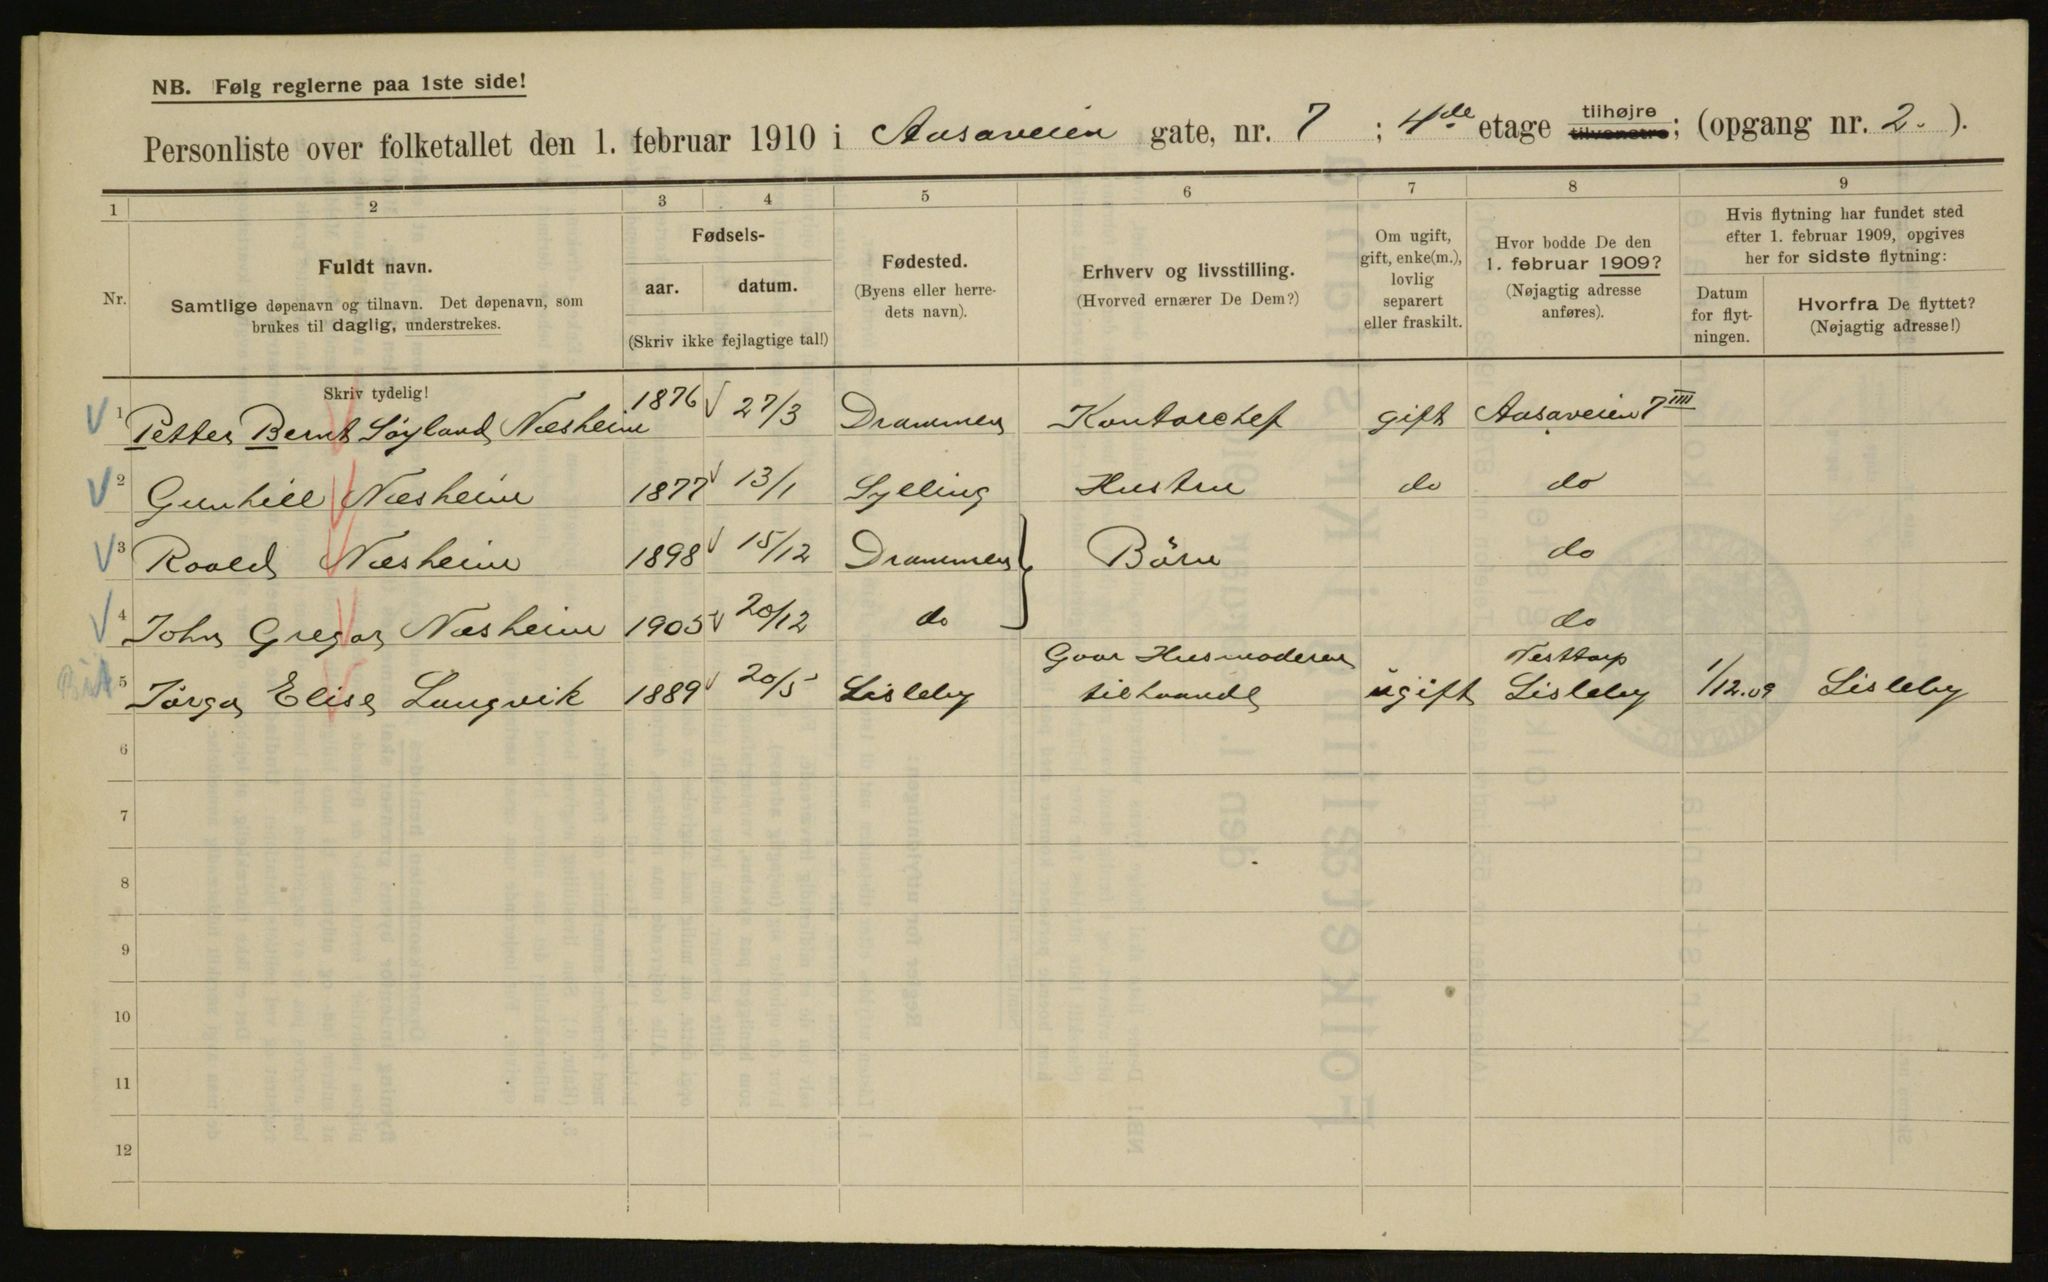 NB. Følg reglerne paa 1ste side!
Personliste over folketallet den 1. februar 1910 i Aasaveien gate, nr. 7 ; 4de etage tilhøjre tilvenstre; (opgang nr. 2. ).
1 2 3 4 5 6 7 8 9
Nr.
Fuldt navn.
Samtlige døpenavn og tilnavn. Det døpenavn, som
brukes til daglig, understrekes.
Fødsels-
aar. datum.
(Skriv ikke fejlagtige tal!)
Fødested.
(Byens eller herre-
dets navn).
Erhverv og livsstilling.
(Hvorved ernærer De Dem?)
Om ugift,
gift, enke(m.),
lovlig
separert
eller fraskilt.
Hvor bodde De den
1. februar 1909?
(Nøjagtig adresse
anføres).
Hvis flytning har fundet sted
efter 1. februar 1909, opgives
her for sidste flytning:
Datum
for flyt-
ningen.
Hvorfra De flyttet?
(Nøjagtig adresse!)
Skriv tydelig!
1 Petter Bernt Söyland Næsheim 1876 27/3 Drammen Kontorchef gift Aasaveien 7 IIII
2 Gunhill Næsheim 1877 13/1 Sylling Hustru do do
3 Roald Næsheim 1898 15/12 Drammen Börn do
4 John Gregar Næsheim 1905 20/12 do do
5 Jörga Elise Langvik 1889 20/5 Lisleby Gaar Husmoderen tilhaande ugift Nesttorp Lisleby 1/12.09 Lisleby
6
7
8
9
10
11
12